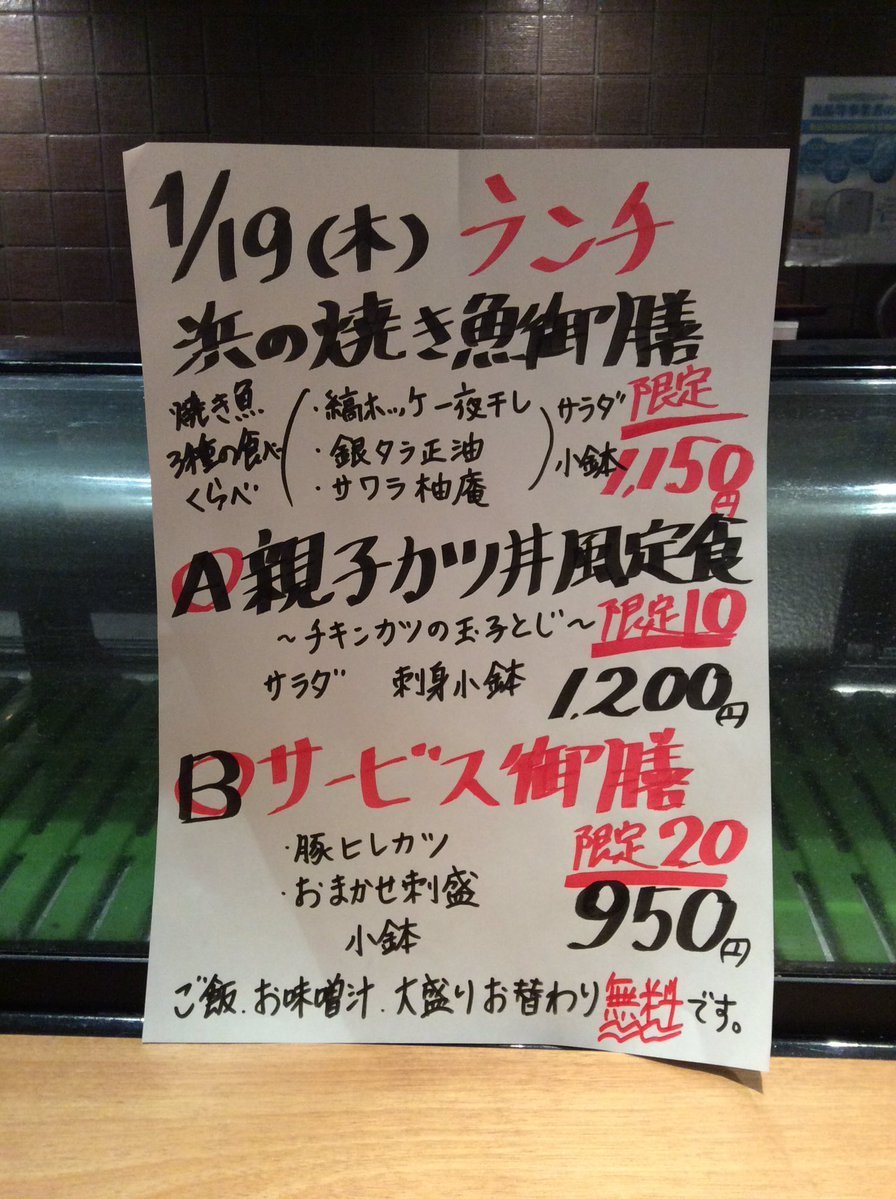 1/19(木) ランチ
浜の焼き魚御膳
焼き魚 3種の食べくらべ
(・縞ホッケ一夜干し
・銀タラ正油
・サワラ柚庵)
サラダ
小鉢
限定
1,150円
A親子カツ丼風定食
〜チキンカツの玉子とじ〜 限定10
サラダ 刺身小鉢 1,200円
Bサービス御膳
・豚ヒレカツ 限定20
・おまかせ刺盛 950円
小鉢
ご飯.お味噌汁.大盛りお替わり無料です。